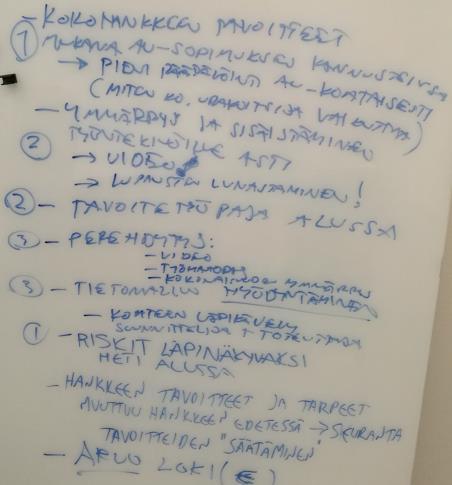 - KOKO HANKKEEN TAVOITTEET
① MUKANA AU-SOPIMUKSEN KANNUSTEISSA
→ PIENI AU-KOHTAISESTI
(MITEN KO. URAKOITSIJA VAIKUTTAA)
- YMMÄRRYS JA SISÄISTÄMINEN
② TYÖNTEKIJÖILLE ASTI
→ VIDEO
→ LUPAUSTEN LUNASTAMINEN!
② - TAVOITETYÖPAJA ALUSSA
③ - PEREHDYTYS:
- VIDEO
- KOKONAISUUDEN YMMÄRRYS
③ - TIETOMALLIN HYÖDYNTÄMINEN
- KOHTEEN LÄPIKÄVELY
SUUNNITTELIJA + TOTEUTTAJA
① - RISKIT LÄPINÄKYVÄKSI
HETI ALUSSA
- HANKKEEN TAVOITTEET JA TARPEET
MUUTTUU HANKKEEN EDETESSÄ → SEURANTA
TAVOITTEIDEN "SÄÄTÄMINEN"
- ARVO LOKI (€)